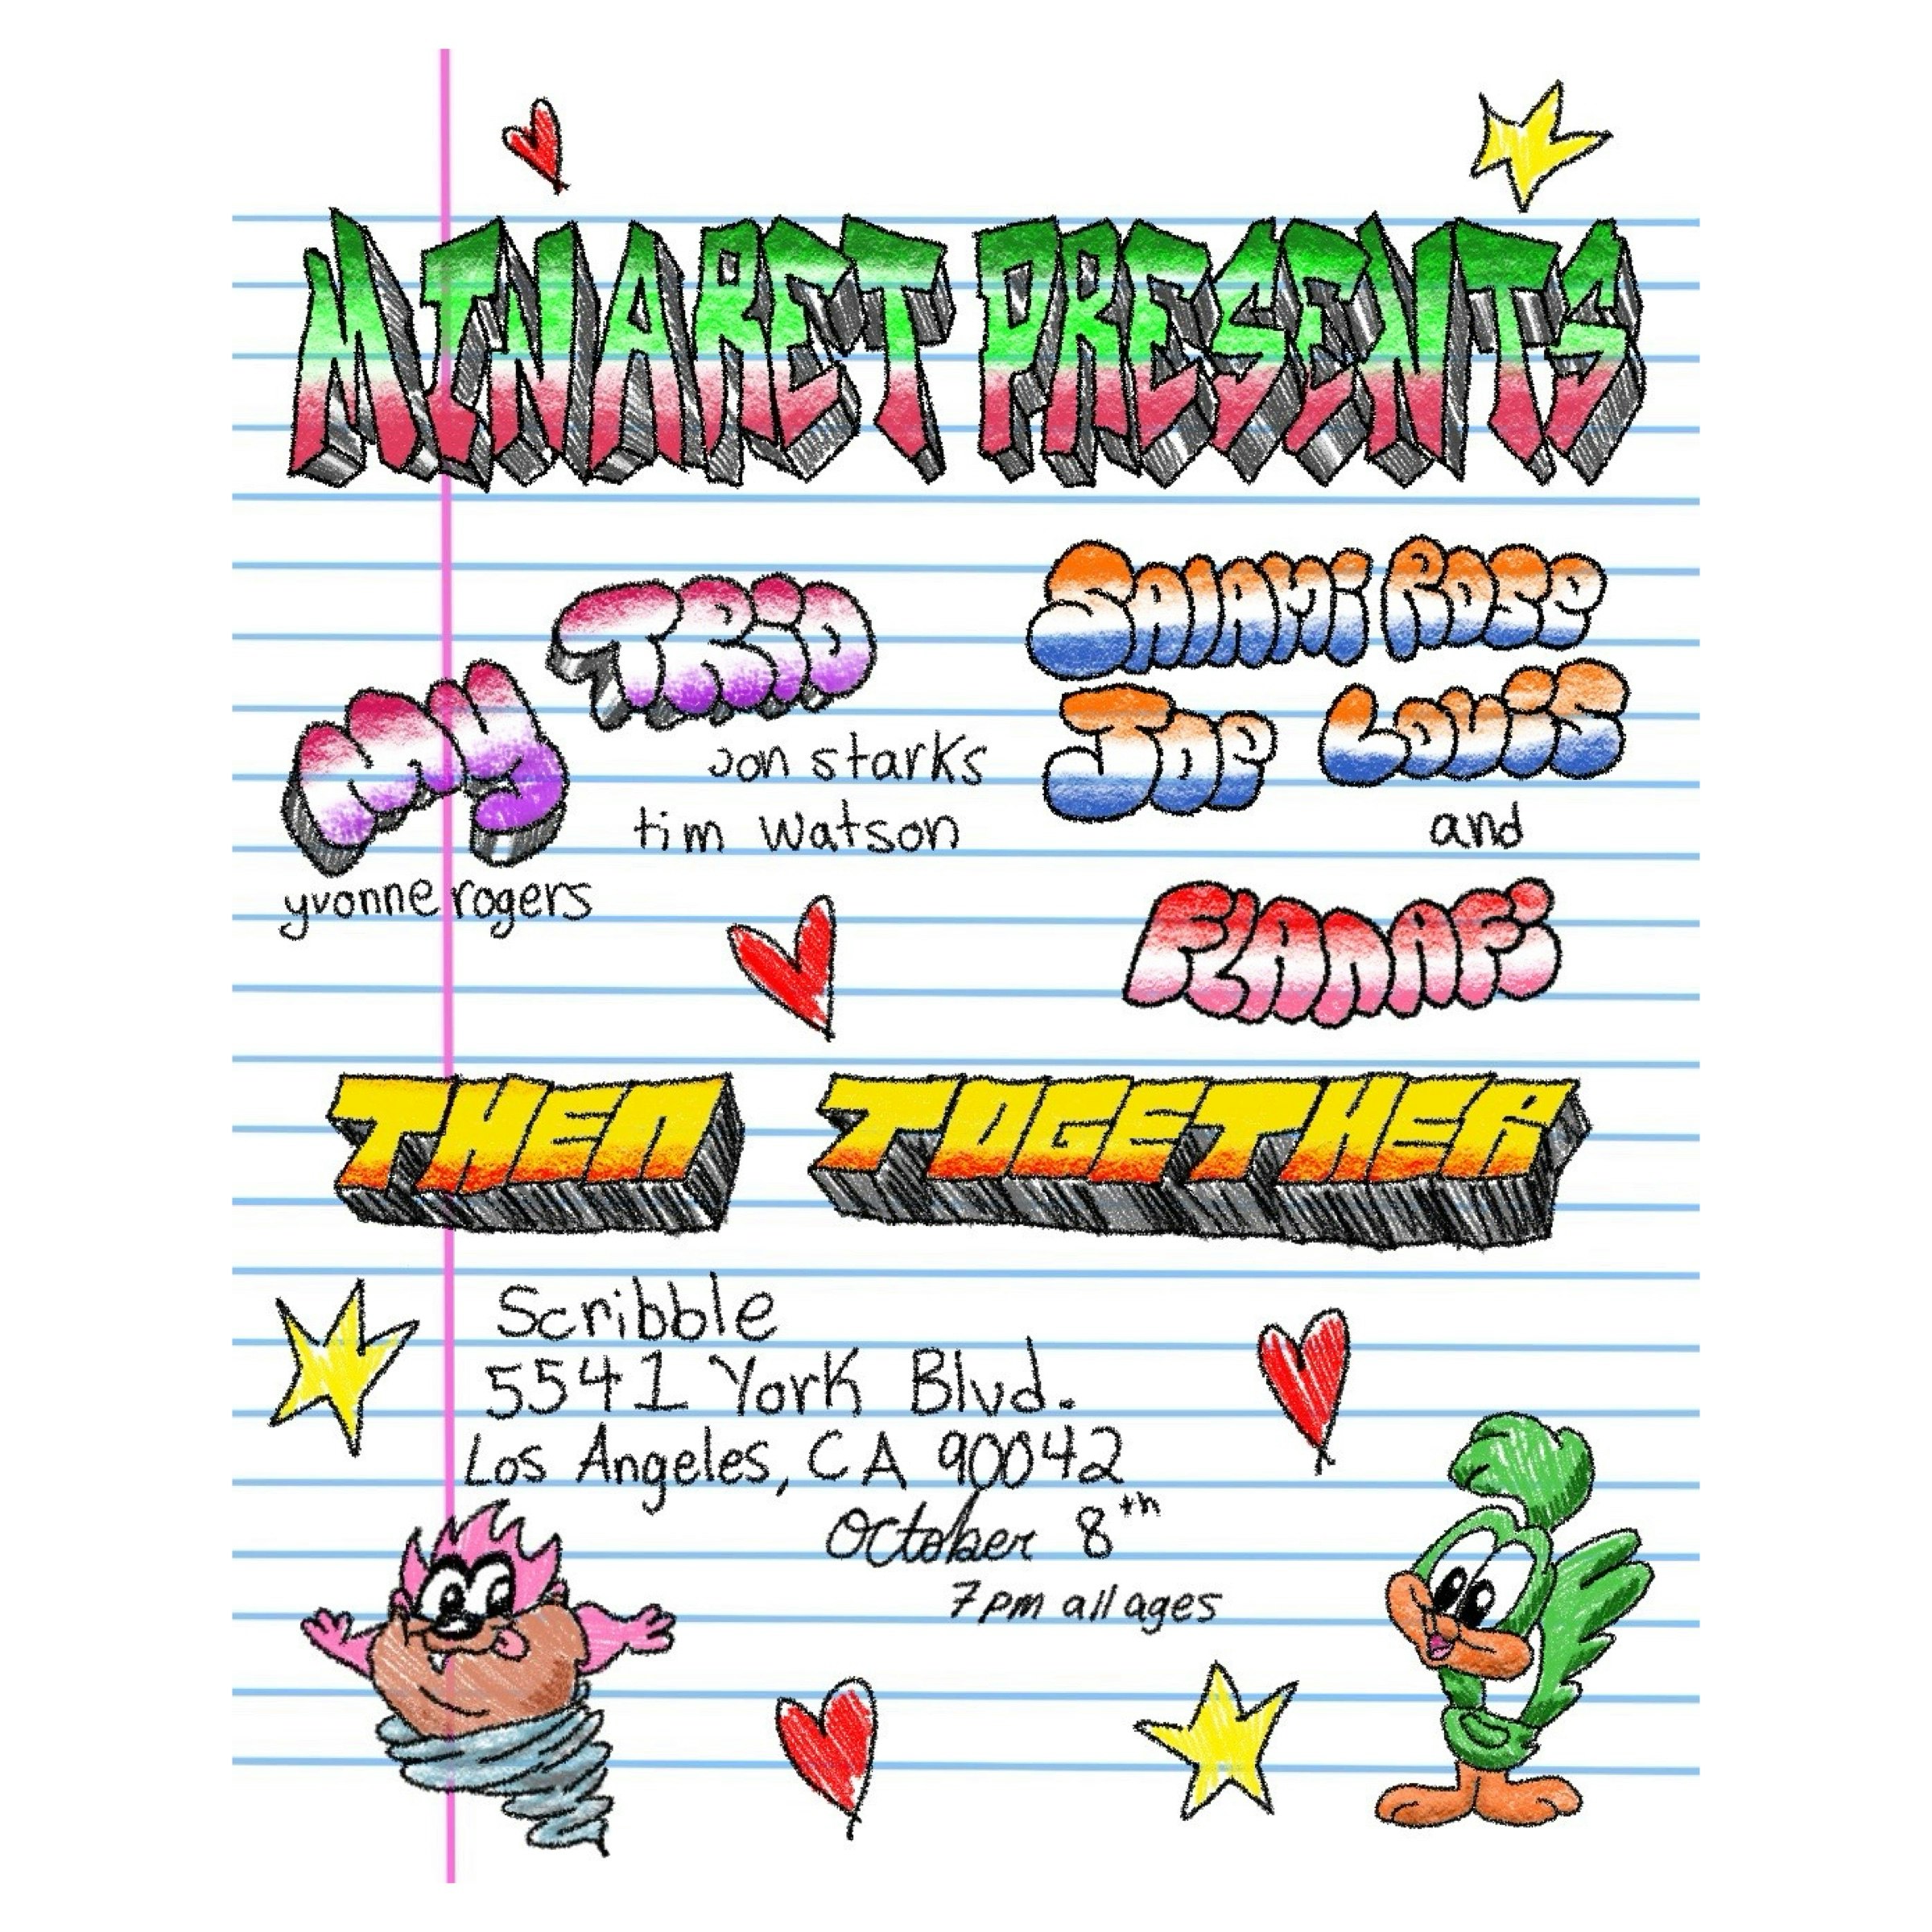 MINARET PRESENTS
MY TRiO
jon starks
tim watson
yvonne rogers
SAlAMi ROSe
JOe LOUiS
and
FLAnAFi
THEN TOGETHER
Scribble
5541 York Blvd.
Los Angeles, CA 90042
October 8th
7pm all ages